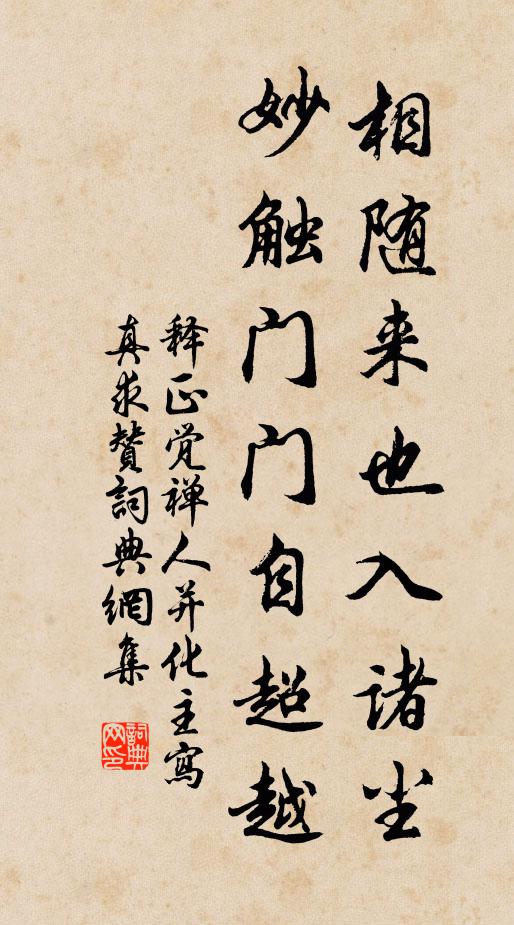 相随来也入诸尘
妙触门门自超越
释正觉禅人并化主寫
真求贊詞典網集
詞典网印